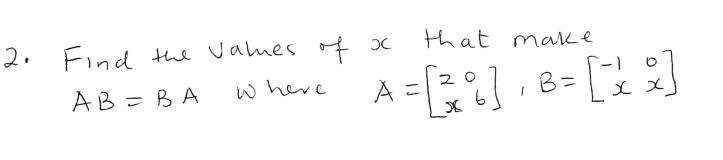 2. Find the values of x that make
AB = BA where A = [2 0; x 6], B = [-1 0; x x]